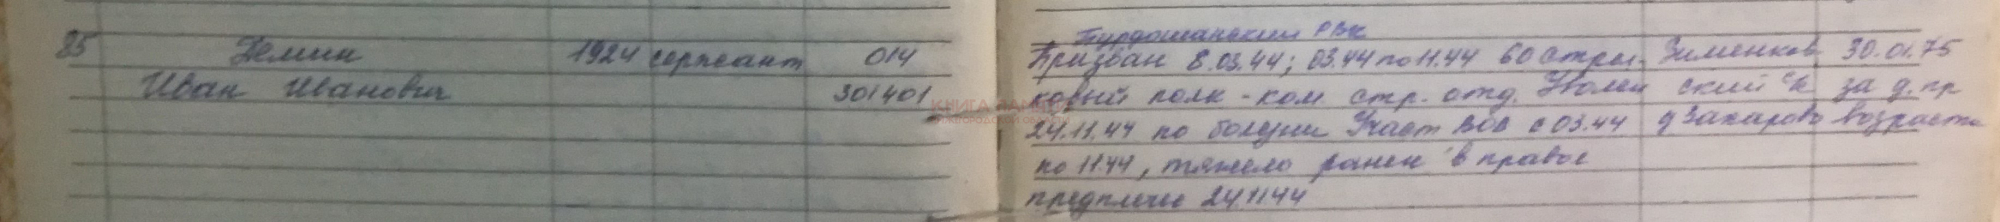 85 Демин 1924 сержант 014
Иван Иванович 301401
КНИГА ПАМЯТИ
РВК
Призван 8.03.44; 03.44 по 11.44 60 стрел- Зименков 30.01.75
ковый полк - ком стр. отд. ский с/с за д. пр
24.11.44 по болезни Участ ВОВ с 03.44 д Захарово возраста
по 11.44, тяжело ранен в правое
предплечье 24.11.44